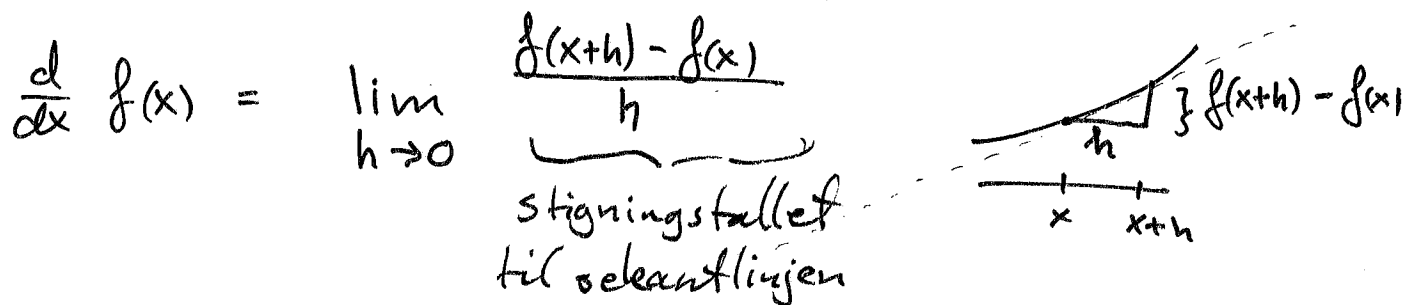 d/dx f(x) = lim h→0 (f(x+h) - f(x))/h
stigningstallet
til sekantlinjen
} f(x+h) - f(x)
h
x x+h